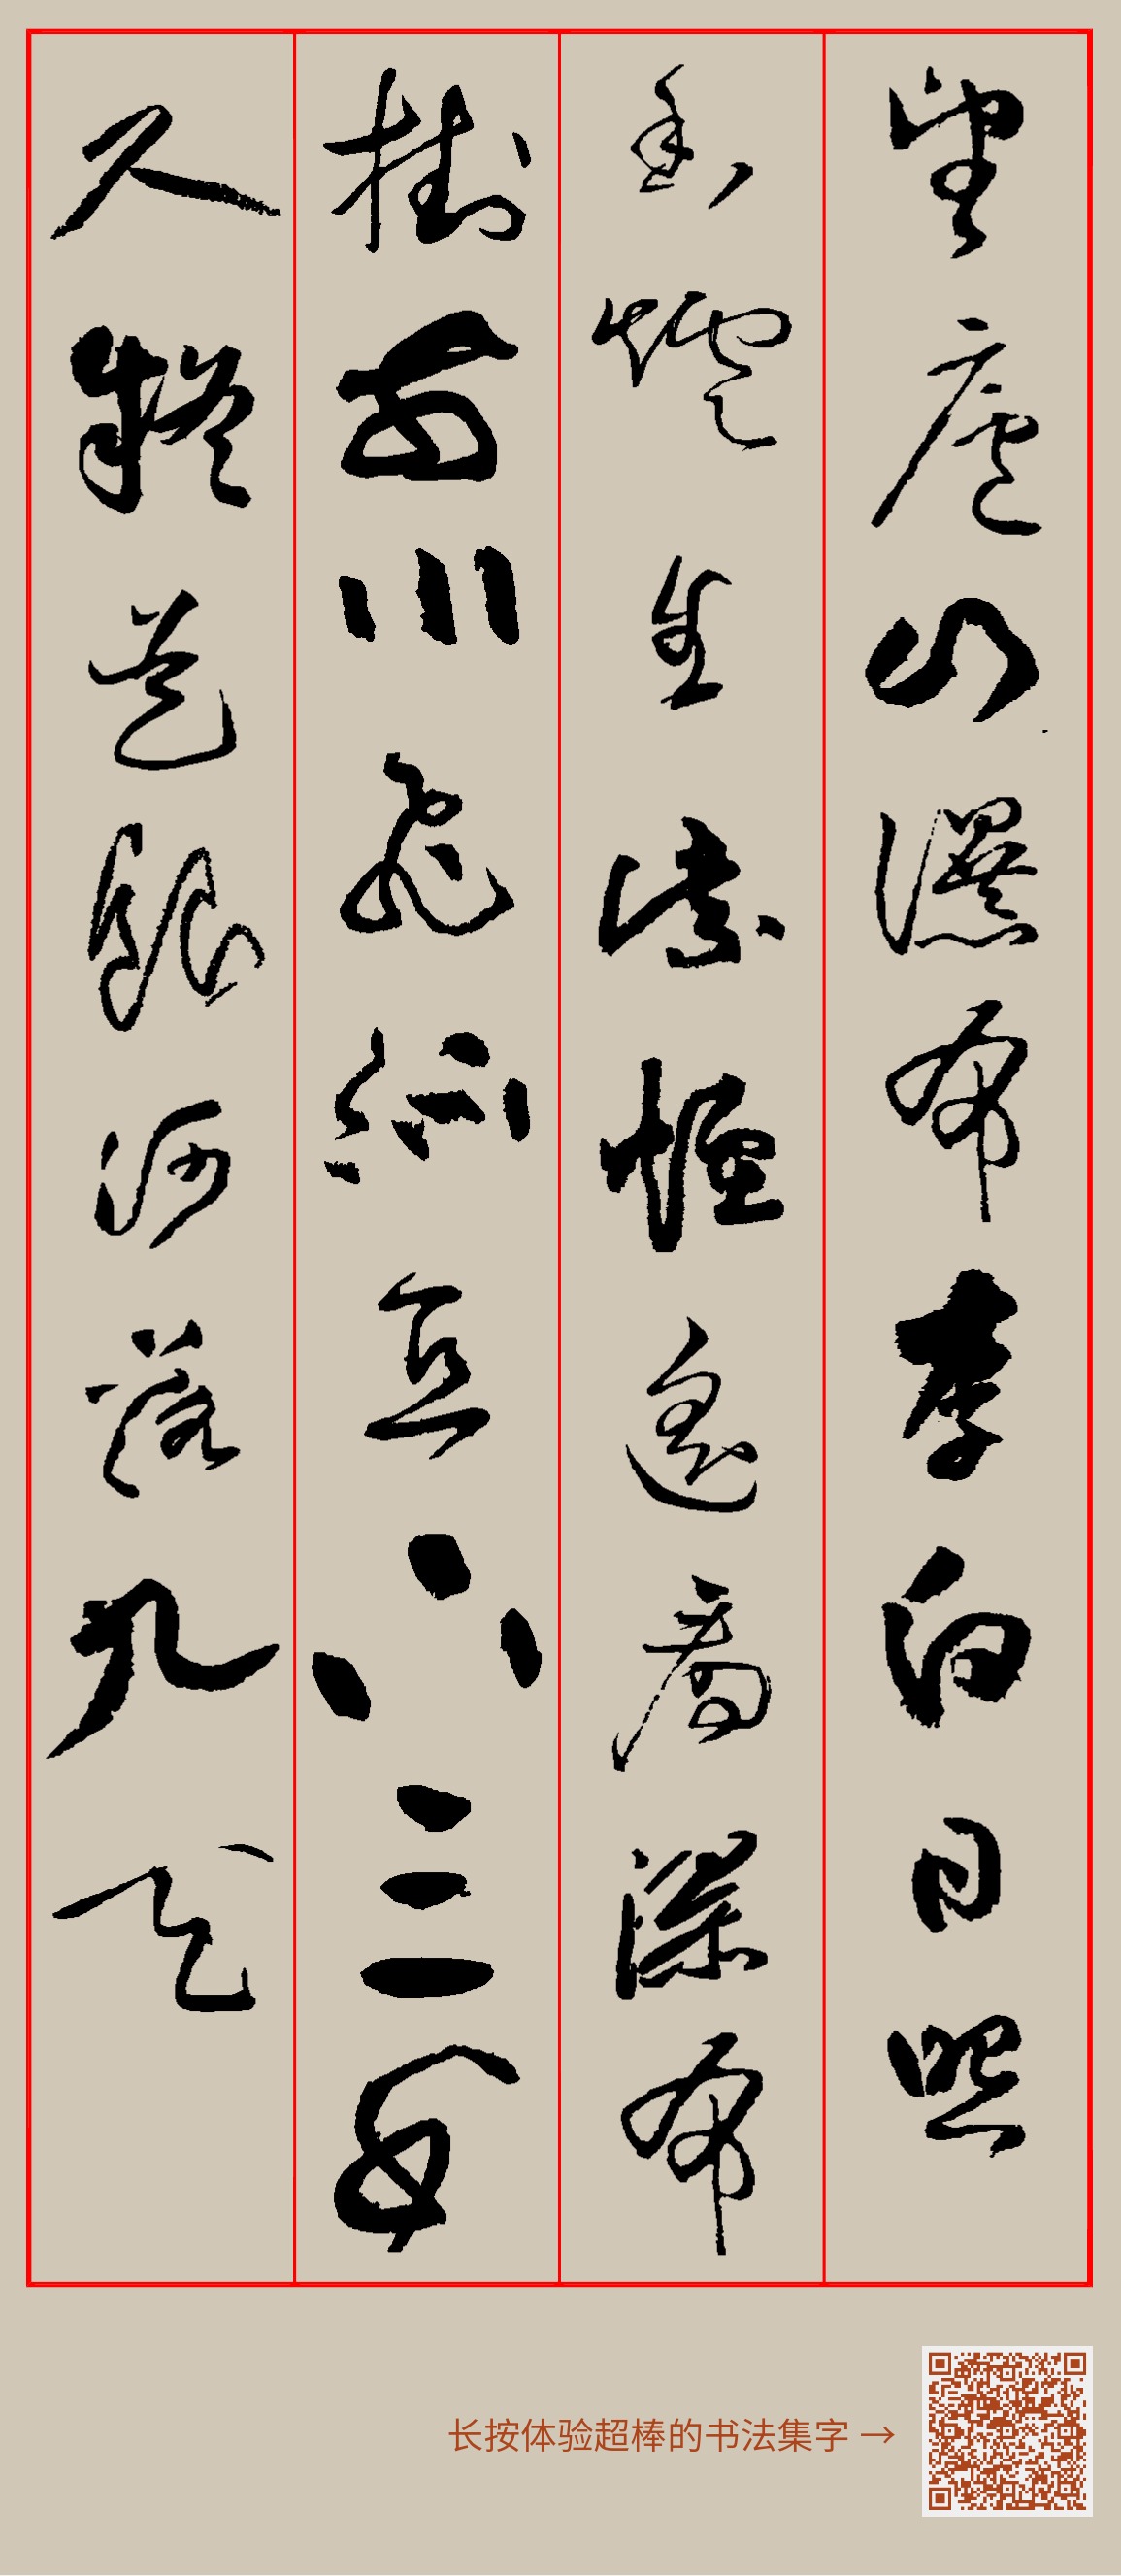 望廬山瀑布李白日照
香爐生紫煙遙看瀑布
掛前川飛流直下三千
尺疑是銀河落九天
长按体验超棒的书法集字 →